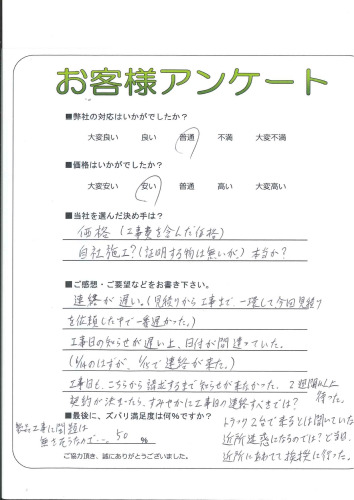 お客様アンケート
■弊社の対応はいかがでしたか？
大変良い 良い 普通 不満 大変不満
■価格はいかがでしたか？
大変安い 安い 普通 高い 大変高い
■当社を選んだ決め手は？
価格（工事費を含んだ価格）
自社施工？（証明する物は無いが）本当か？
■ご感想・ご要望などをお書き下さい。
連絡が遅い。（見積りから工事まで、一環して今回見積り
を依頼した中で一番遅かった。）
工事日の知らせが遅い上、日付が間違っていた。
（6/14のはずが、6/15で連絡が来た。）
工事日も、こちらから請求するまで知らせが来なかった。2週間以上待った。
契約が決まったら、すみやかに工事日の連絡すべきでは？
■最後に、ズバリ満足度は何％ですか？
製品工事に問題は
無さそうなので…。50 ％
トラック2台で来るとは聞いていた
近所迷惑になるのでは？
近所にあわてて挨拶に行った。
ご協力頂き、誠にありがとうございました。